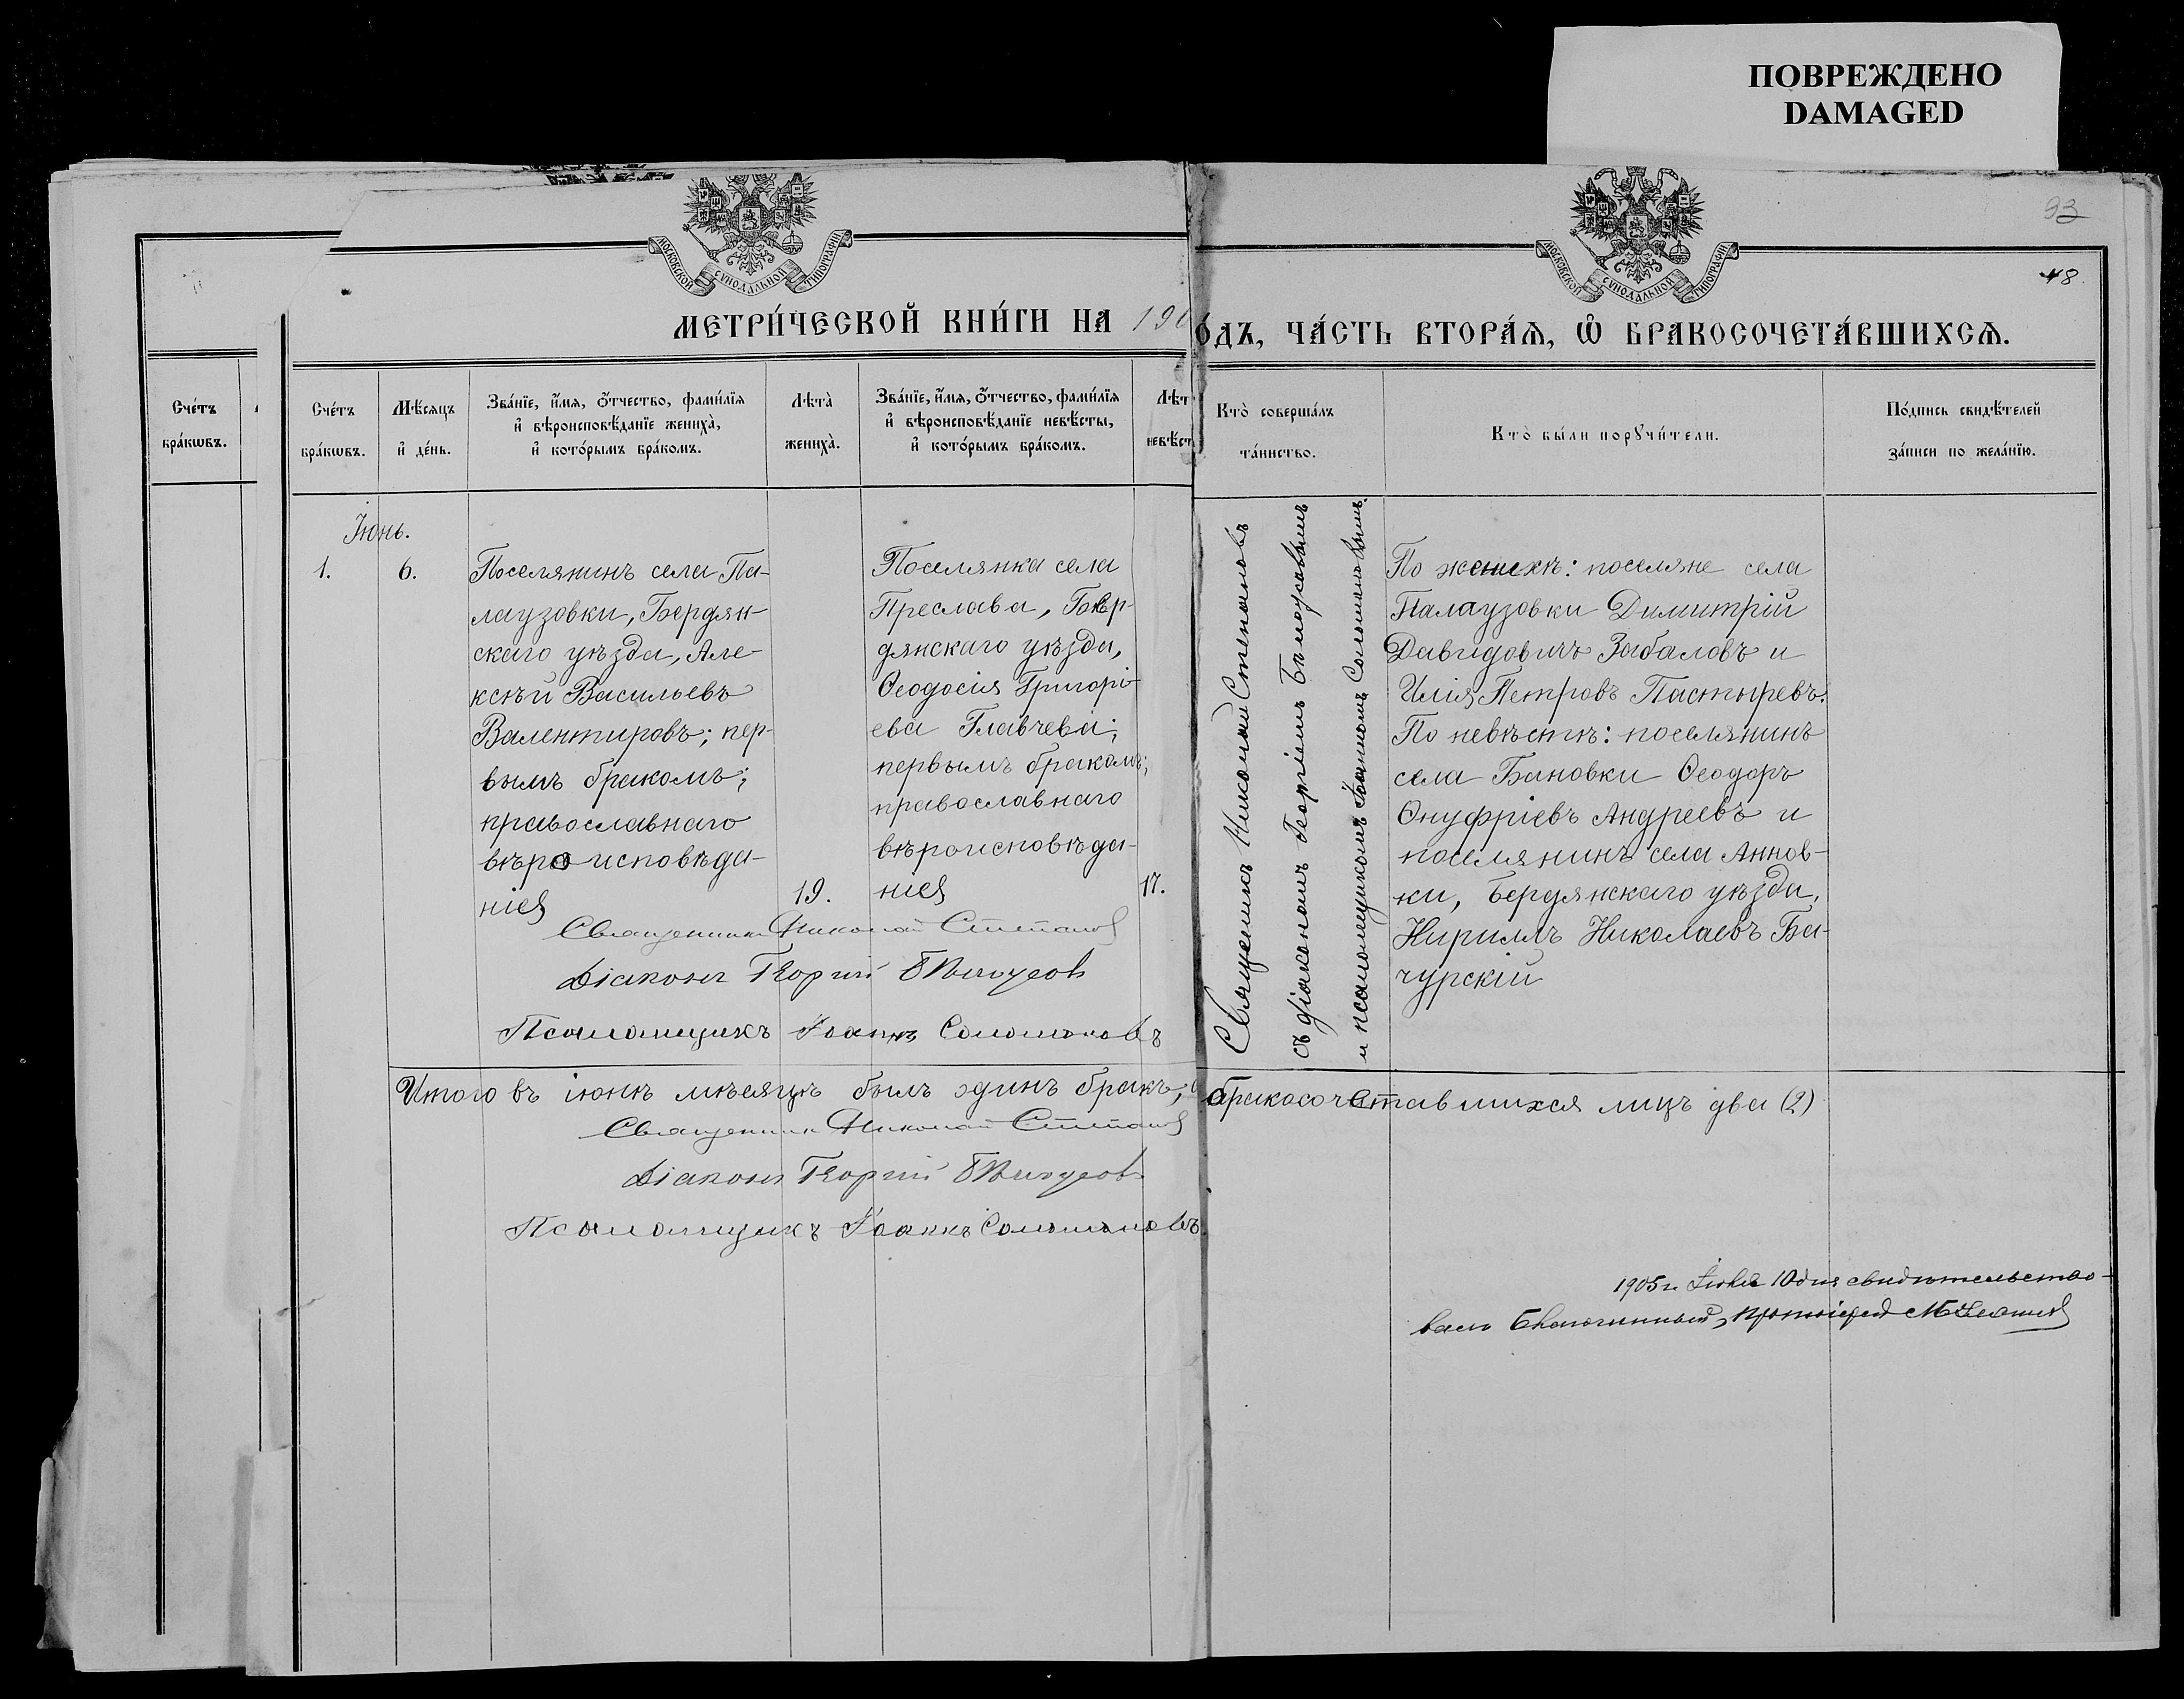 ПОВРЕЖДЕНО
DAMAGED
МОСКОВСКОЙ СѴНОДАЛЬНОЙ ТИПОГРАФІИ
МОСКОВСКОЙ СѴНОДАЛЬНОЙ ТИПОГРАФІИ
93
48.
МЕТРИ́ЧЕСКОЙ КНИ́ГИ НА 190
О́ДЪ, ЧА́СТЬ ВТОРА́Ѧ, Ѡ҆ БРАКОСОЧЕТА́ВШИХСѦ.
Сче́тъ
бра́кѡвъ.
Сче́тъ
бра́кѡвъ.
Мѣ́сяцъ
и҆ де́нь.
Зва́нїе, и҆́мя, ѻ҆́тчество, фами́лїя
и҆ вѣроисповѣ́данїе жениха̀,
и҆ кото́рымъ бра́комъ.
Лѣта̀
жениха̀.
Зва́нїе, и҆́мя, ѻ҆́тчество, фами́лїя
и҆ вѣроисповѣ́данїе невѣ́сты,
и҆ кото́рымъ бра́комъ.
Лѣт
невѣ́ст
Кто̀ соверша́лъ
та́инство.
Кто̀ бы́ли порꙋчи́тели.
По́дпись свидѣ́телей
за́писи по жела́нїю.
Іюнь.
1.
6.
Поселянинъ села Па-
лаузовки, Бердян-
скаго уѣзда, Але-
ксѣй Васильевъ
Валентировъ; пер-
вымъ бракомъ;
православнаго
вѣроисповѣда-
нія
19.
Поселянка села
Преслава, Бер-
дянскаго уѣзда,
Ѳеодосія Григорі-
ева Главчева;
первымъ бракомъ;
православнаго
вѣроисповѣда-
нія
17.
Священникъ Николай Степановъ
съ діакономъ Георгіемъ Бѣлоусовымъ
и псаломщикомъ Іоанномъ Соломоновымъ.
По женихѣ: поселяне села
Палаузовки Димитрій
Давидовичъ Забаловъ и
Илія Петровъ Пастыревъ.
По невѣстѣ: поселянинъ
села Бановки Ѳеодоръ
Онуфріевъ Андреевъ и
поселянинъ села Аннов-
ки, Бердянскаго уѣзда,
Кириллъ Николаевъ Ба-
чурскій
Священникъ Николай Степановъ
Діаконъ Георгій Бѣлоусовъ
Псаломщикъ Іоаннъ Соломоновъ
Итого въ іюнѣ мѣсяцѣ былъ одинъ бракъ, а
бракосочетавшихся лицъ два (2)
Священникъ Николай Степановъ
Діаконъ Георгій Бѣлоусовъ
Псаломщикъ Іоаннъ Соломоновъ.
1905 г. Іюля 10 дня свидѣтельство-
валъ Благочинный, Протоіерей